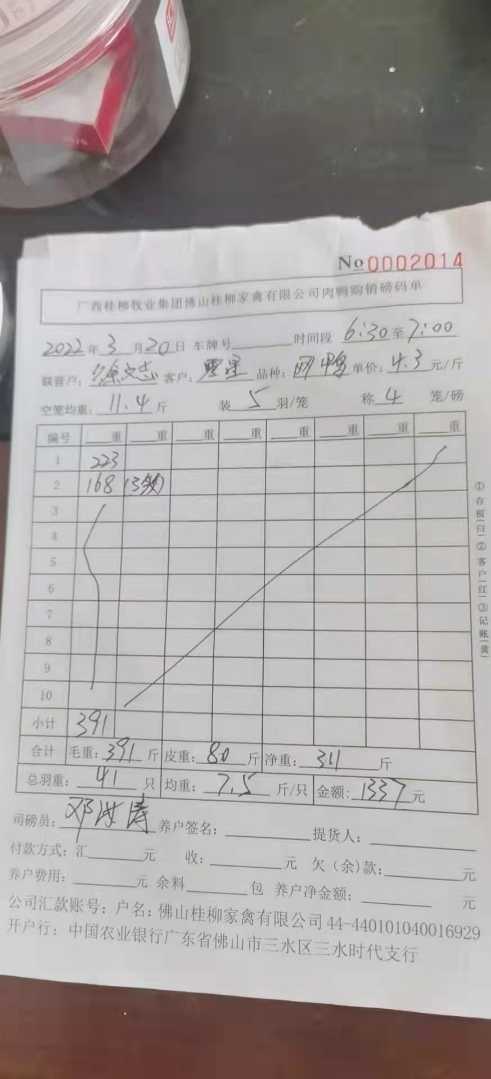 No 0002014
广西桂柳牧业集团佛山桂柳家禽有限公司肉鸭购销磅码单
2022年3月20日 车牌号 时间段 6:30至7:00
联营户: 客户: 品种: 肉鸭 单价: 4.3 元/斤
空笼均重: 11.4 斤 装 5 羽/笼 称 4 笼/磅
编号 重 重 重 重 重 重 重 重
1 223
2 168
3
4
5
6
7
8
9
10
小计 391
合计 毛重: 391 斤 皮重: 80 斤 净重: 311 斤
总羽重: 41 只 均重: 7.5 斤/只 金额: 1337 元
司磅员: 养户签名: 提货人:
付款方式: 汇 元 收: 元 欠(余)款: 元
养户费用: 元 余料 包 养户净金额: 元
公司汇款账号: 户名: 佛山桂柳家禽有限公司 44-440101040016929
开户行: 中国农业银行广东省佛山市三水区三水时代支行
①存根(白)②客户(红)③记账(黄)